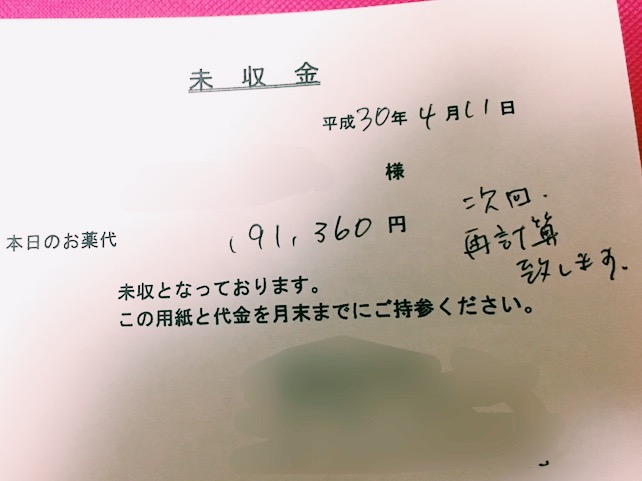 未 収 金
平成30年4月11日
様
本日のお薬代 191,360円
次回、
再計算
致します。
未収となっております。
この用紙と代金を月末までにご持参ください。